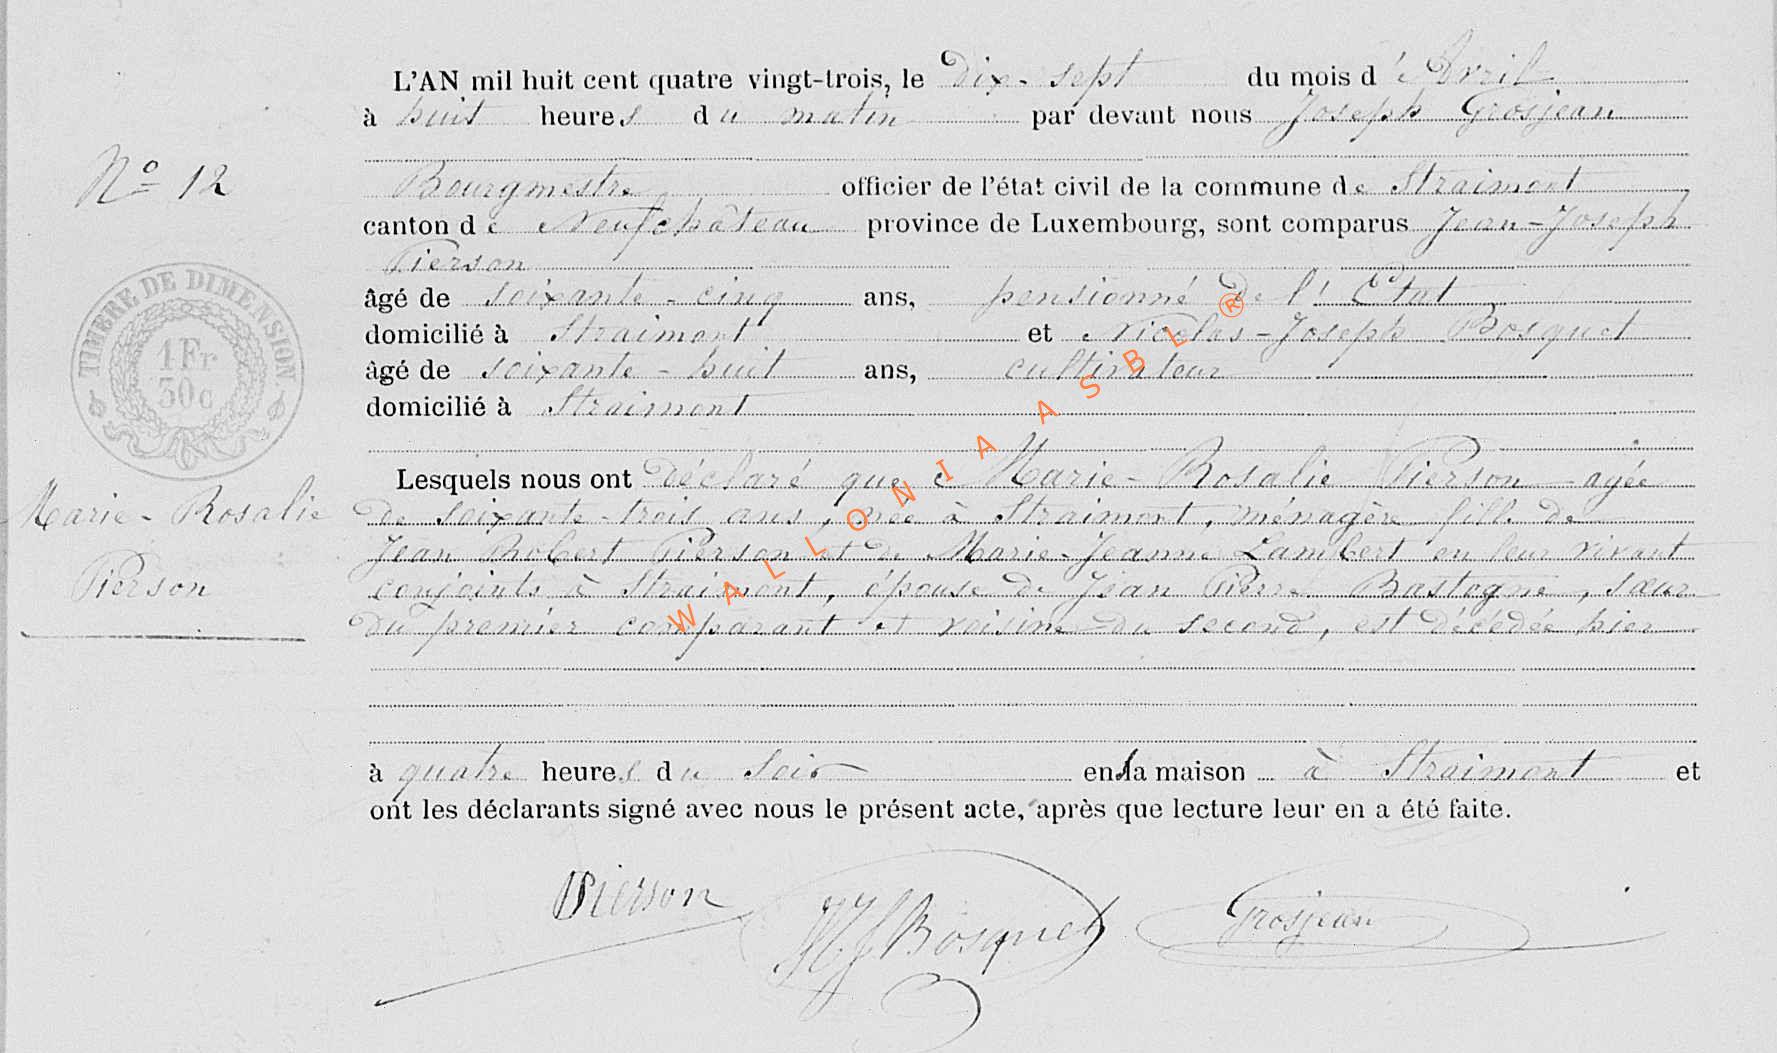 L'AN mil huit cent quatre vingt-trois, le Dix-sept du mois d'Avril
à huit heures du matin par devant nous Joseph Grosjean
N° 12
Bourgmestre officier de l'état civil de la commune de Straimont
canton de Neufchâteau province de Luxembourg, sont comparus Jean-Joseph
Pierson
âgé de soixante-cinq ans, pensionné de l'Etat
domicilié à Straimont et Nicolas-Joseph Bosquet
âgé de soixante-huit ans, cultivateur
domicilié à Straimont
TIMBRE DE DIMENSION.
1 Fr
30c
Lesquels nous ont déclaré que Marie-Rosalie Pierson agée
de soixante-trois ans, née à Straimont, ménagère fille de
Jean Robert Pierson et de Marie-Jeanne Lambert en leur vivant
conjoints à Straimont, épouse de Jean Pierre Bastogne, sœur
du premier comparant et voisine du second, est décédée hier
Marie-Rosalie
Pierson
à quatre heures du soir en sa maison à Straimont et
ont les déclarants signé avec nous le présent acte, après que lecture leur en a été faite.
Pierson
NJBosquet
Grosjean
WALLONIA ASBL ®